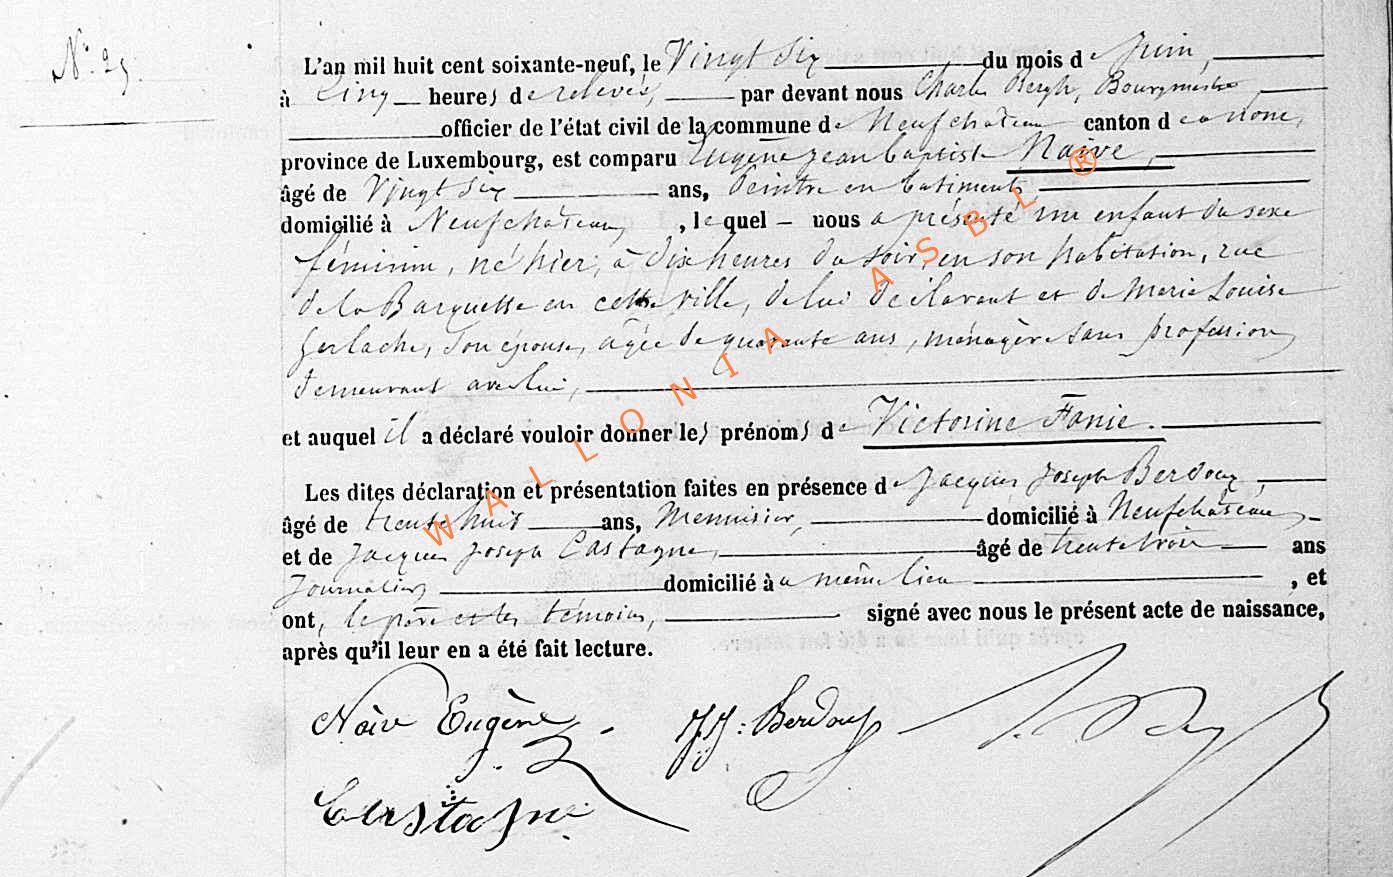 N° 25.
L'an mil huit cent soixante-neuf, le Vingt six du mois de Juin,
à Cinq heures de relevée, par devant nous Charles Bergh, Bourgmestre,
officier de l'état civil de la commune de Neufchateau canton de ce nom,
province de Luxembourg, est comparu Eugène Jean Baptiste Naive,
âgé de Vingt six ans, Peintre en batiments
domicilié à Neufchateau, lequel nous a présenté un enfant du sexe
féminin, né hier, à dix heures du soir, en son habitation, rue
de la Barquette en cette ville, de lui déclarant et de Marie Louise
Gerlache, son épouse, agée de quarante ans, ménagère sans profession
demeurant avec lui,
et auquel il a déclaré vouloir donner les prénoms de Victorine Fanie.
Les dites déclaration et présentation faites en présence de Jacques Joseph Berdoux,
âgé de trente huit ans, Menuisier, domicilié à Neufchâteau,
et de Jacques Joseph Castagne, âgé de trente trois ans
Journalier, domicilié à même lieu, et
ont, le père et les témoins, signé avec nous le présent acte de naissance,
après qu'il leur en a été fait lecture.
Naiv Eugène J.J. Berdoux
Castagne
WALLONIA ASBL ®